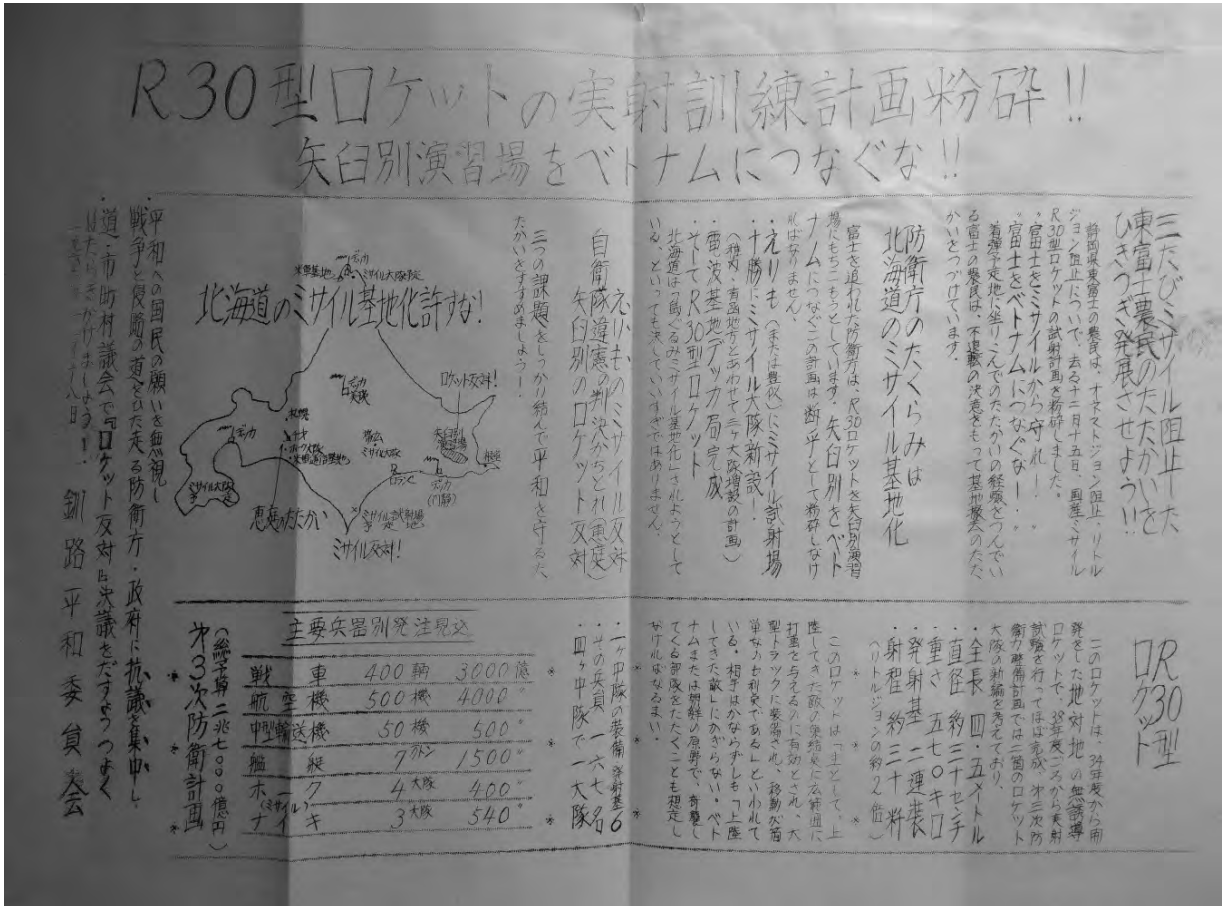 R30型ロケットの実射訓練計画粉砕!!
矢臼別演習場をベトナムにつなぐな!!
三たびミサイル阻止した
東富士農民のたたかいを
ひきつぎ発展させよう!!
静岡県東富士の農民は、オネストジョン阻止・リトル
ジョン阻止についで、去る十二月十五日、国産ミサイル
R30型ロケットの試射計画を粉砕しました。
"富士をミサイルから守れ!"
"富士をベトナムにつなぐな!"
着弾予定地に坐りこんでのたたかいの経験をつんでい
る富士の農民は、不退転の決意をもって基地撤去のたた
かいをつづけています。
防衛庁のたくらみは
北海道のミサイル基地化
富士を追われた防衛庁は、R30ロケットを矢臼別演習
場にもちこもうとしています。矢臼別をベト
ナムにつなぐこの計画は断乎として粉砕しなけ
ればなりません。
・えりも(または豊似)にミサイル試射場
・十勝にミサイル大隊新設!
(稚内・函館地方とあわせて三ヶ大隊増設の計画)
・電波基地デッカ局完成
・そしてR30型ロケット
北海道は「島ぐるみミサイル基地化」されようとして
いる、といっても決していいすぎではありません。
えりものミサイル反対
自衛隊違憲の判決かちとれ(恵庭)
矢臼別のロケット反対
三つの課題をしっかり結んで平和を守るた
たかいをすすめましょう!
北海道のミサイル基地化許すな!
デッカ
米軍基地
ミサイル大隊予定
ロケット反対!
デッカ
矢臼別
演習場
札幌
帯広
ミサイル大隊
デッカ
ロラン
デッカ
ミサイル大隊
予定
恵庭のたたかい
ミサイル試射場
予定地
ミサイル反対!
・平和への国民の願いを無視し
戦争と侵略の道をひた走る防衛庁・政府に抗議を集中し、
・道・市・町村議会で「ロケット反対」の決議をだすようつよく
はたらきかけましょう!!
釧路平和委員会
R30型
ロケット
このロケットは、34年度から開
発をした地対地の無誘導
ロケットで、38年度ころから実射
試験を行ってほぼ完成、第三次防
衛力整備計画では二箇のロケット
大隊の新編を考えており、
・全長 四・五メートル
・直径 約三十センチ
・重さ 五七〇キロ
・発射基 二連装
・射程 約三十粁
(リトルジョンの約2倍)
このロケットは「主として、上
陸してきた敵の集結点に広範囲に
打撃を与えるのに有効とされ、大
型トラックに装備され、移動が簡
単なのも利点である」といわれて
いる。相手はかならずしも「上陸
してきた敵」にかぎらない。ベト
ナムまたは朝鮮の原野で、奇襲し
てくる部隊をたたくことも想定し
なければなるまい。
・一ヶ中隊の装備 発射基6
・その兵員 一六七名
・四ヶ中隊で一大隊
主要兵器別発注見込
戦車 400輌 3000億
航空機 500機 4000〃
中型輸送機 50機 500〃
艦艇 7万トン 1500〃
ホーク 4大隊 400〃
(ミサイル)
ナイキ 3大隊 540〃
(総予算 二兆七〇〇〇億円)
第3次防衛計画